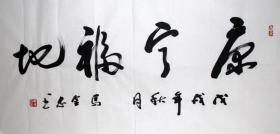 康宁福地
戊戌年秋月 马金忠书